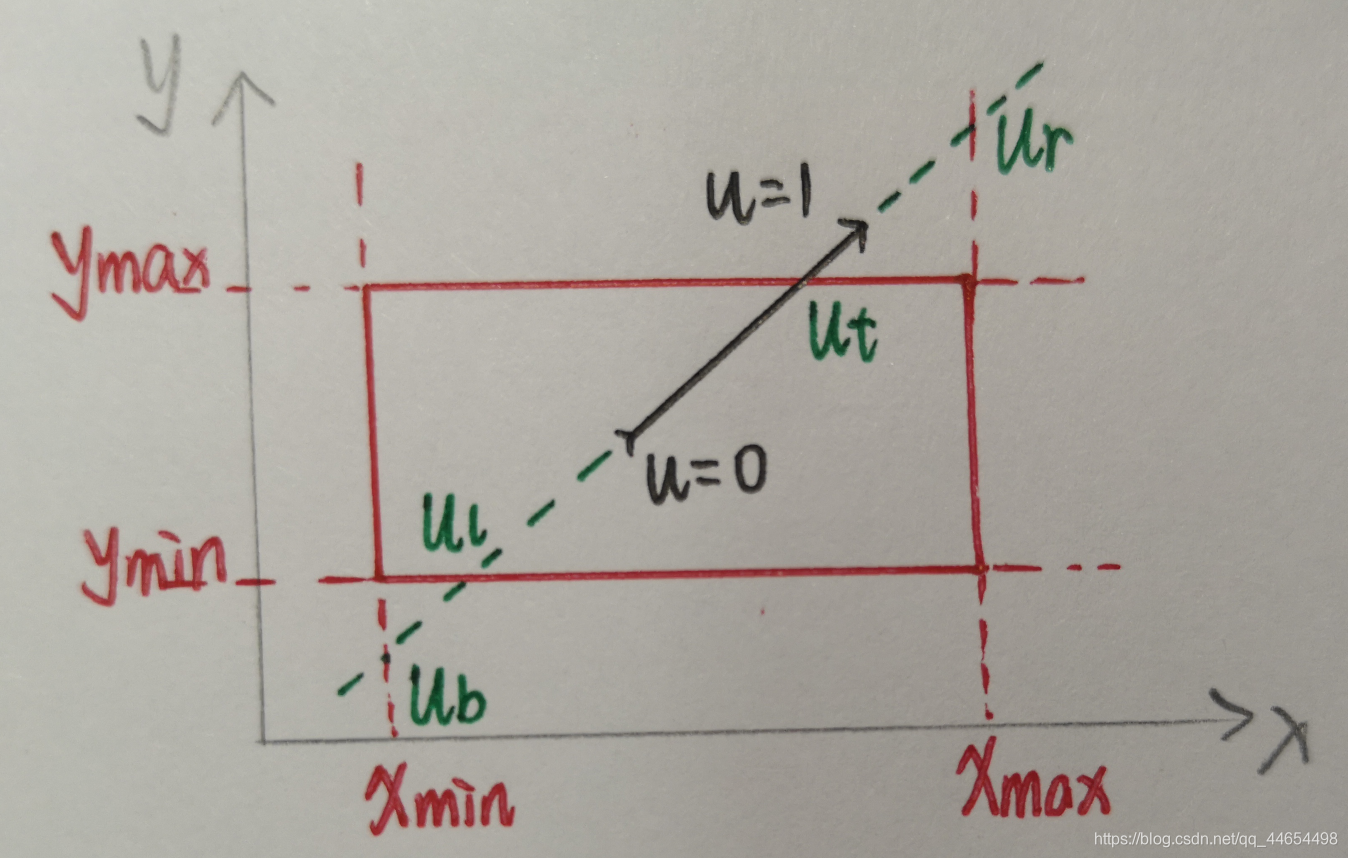 y
Ur
u=1
ymax
Ut
u=0
Ul
ymin
Ub
x
xmin
xmax
https://blog.csdn.net/qq_44654498